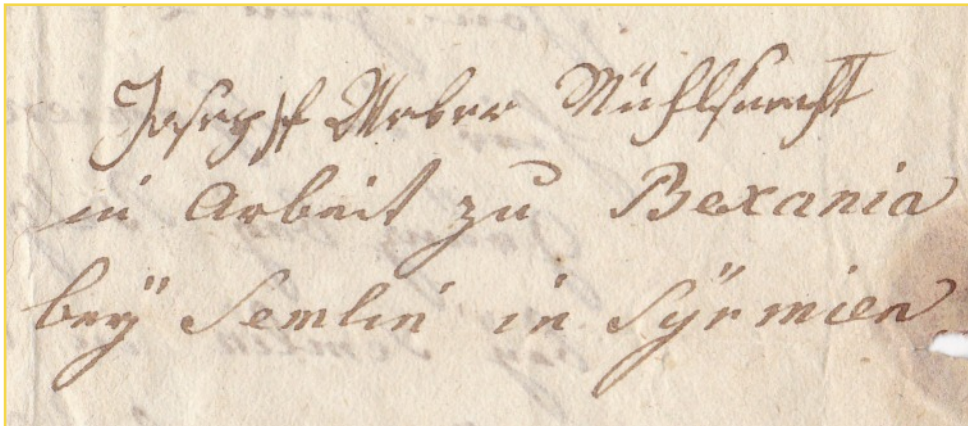 Joseph Weber Mühlknecht
in Arbeit zu Bexania
beÿ Semlin in Sÿrmien